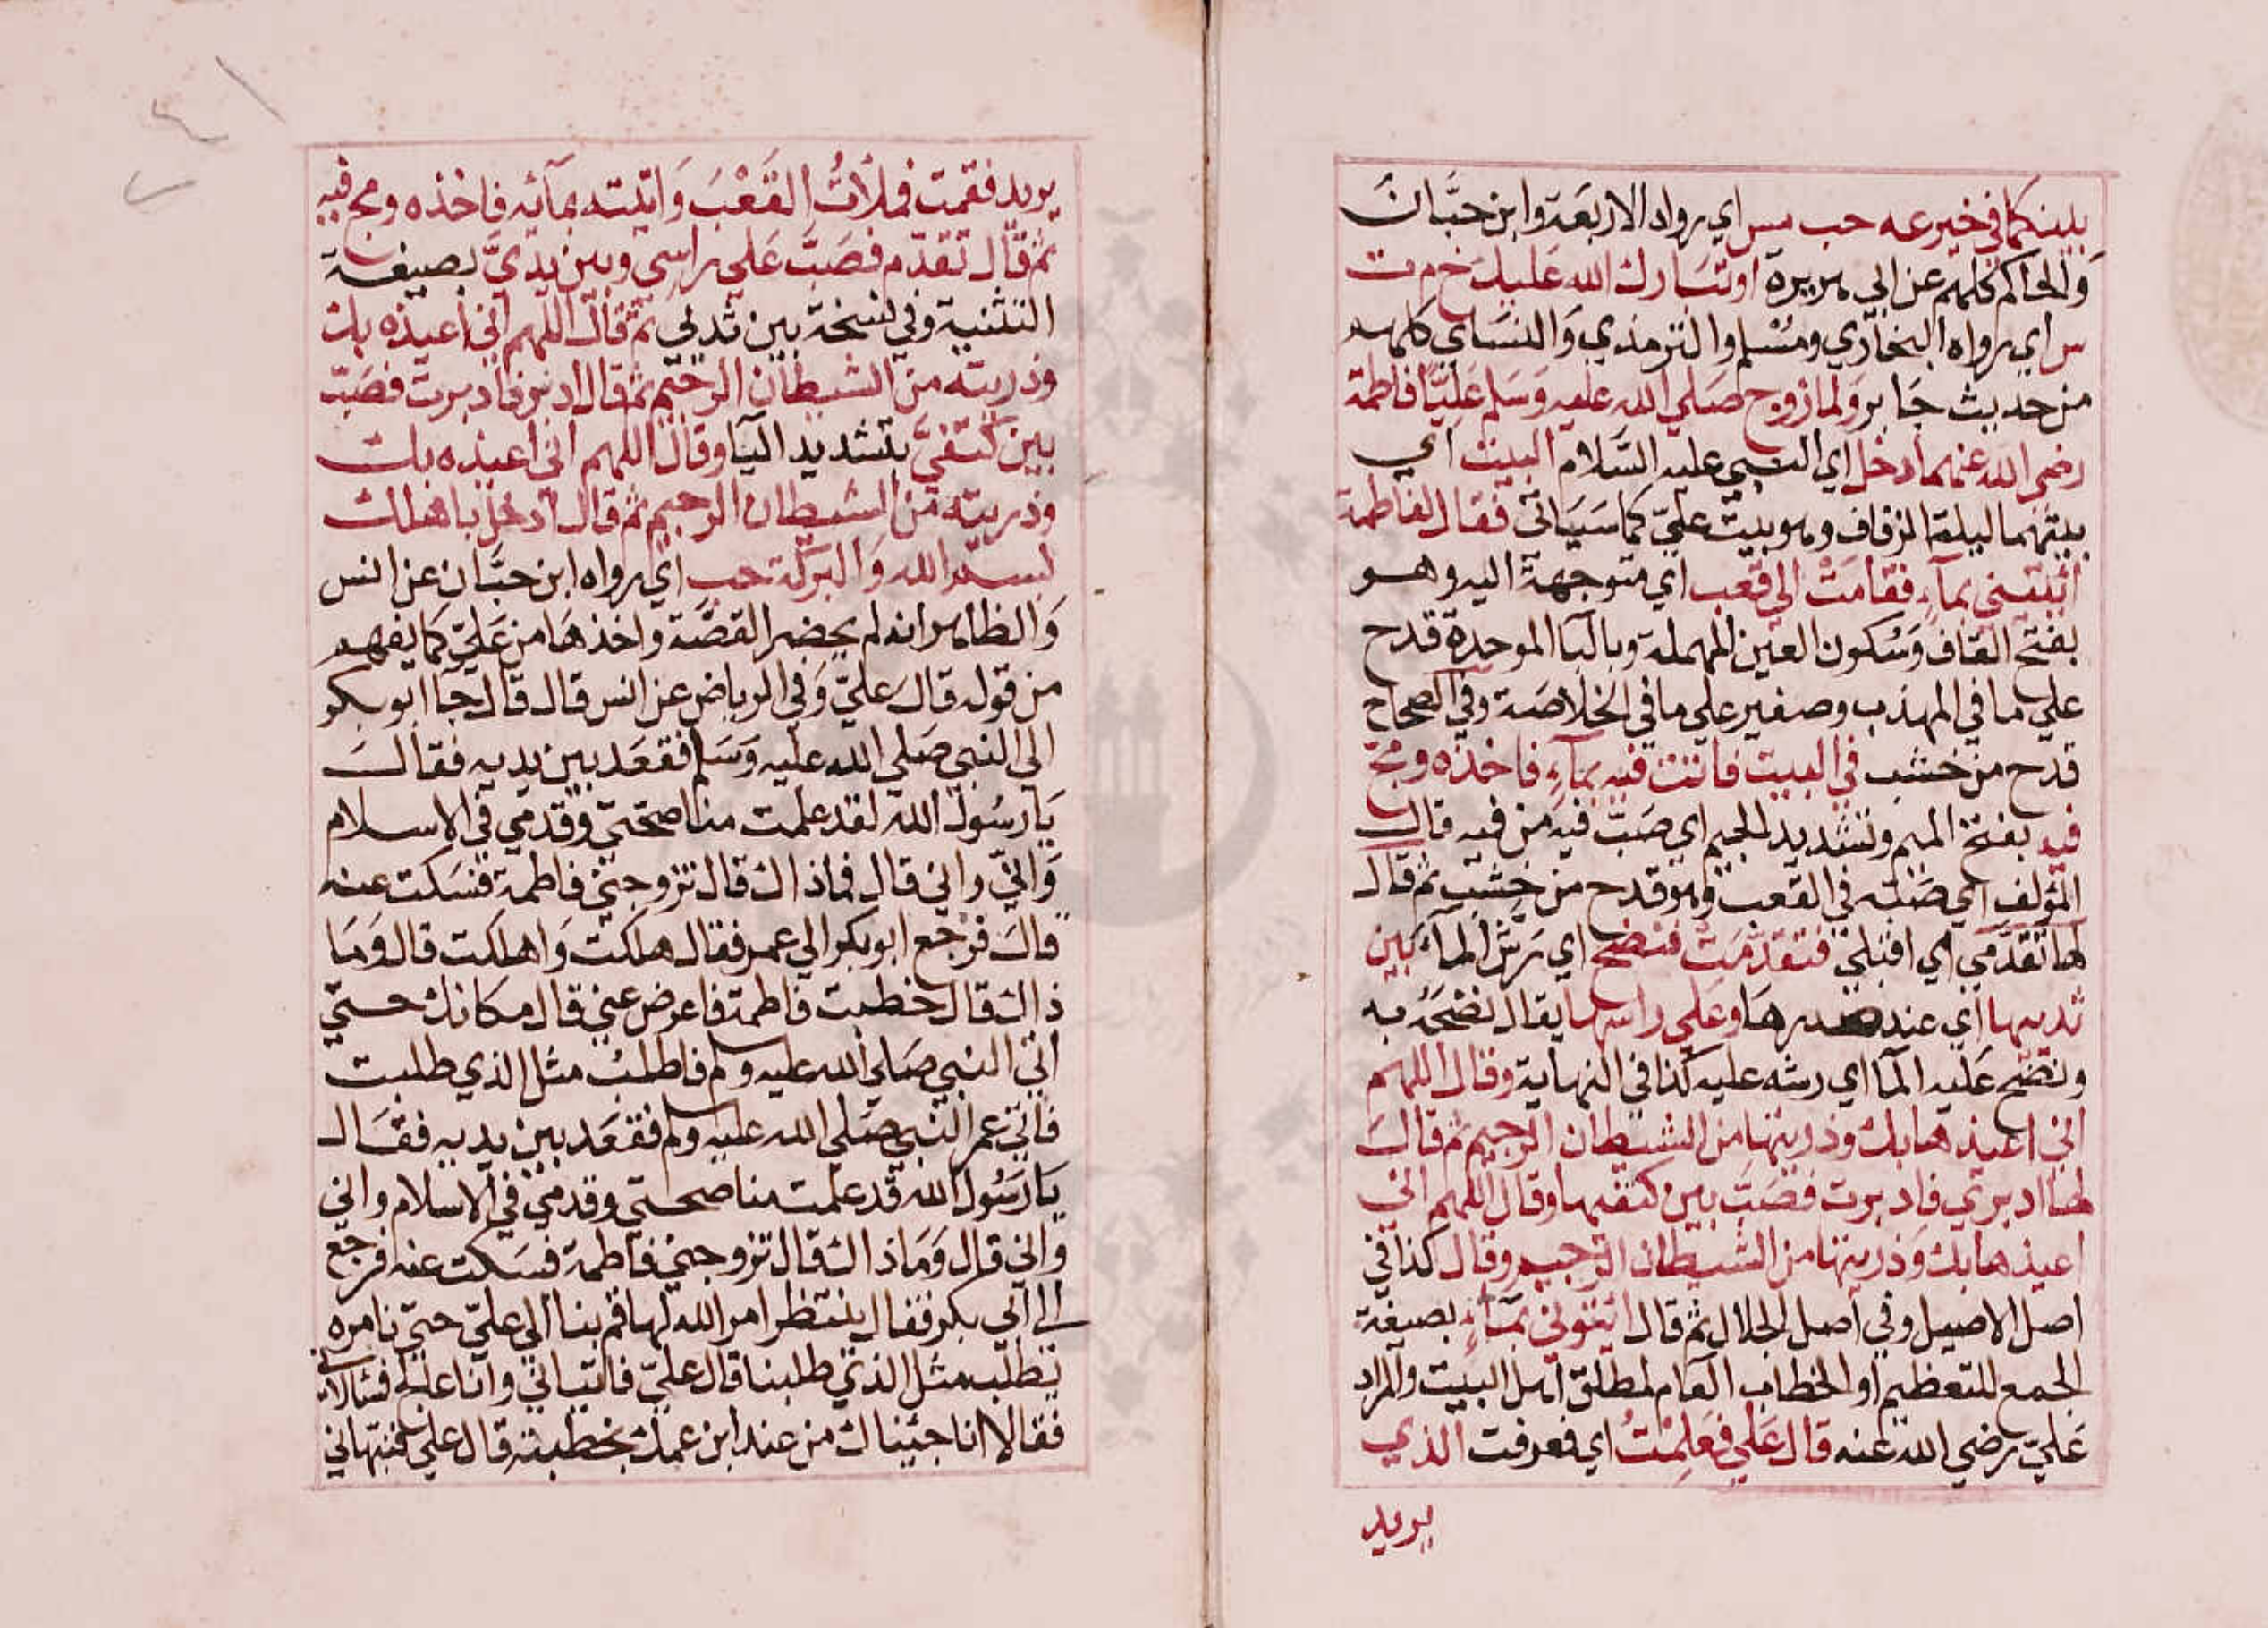 بينكما في خير عه حب مس اي رواه الاربعة وابن حبان
والحاكم كلهم عن ابي هريرة او تبارك الله عليك خ م ت
س اي رواه البخاري ومسلم والترمذي والنساي كلهم
من حديث جابر ولما زوج صلي الله عليه وسلم عليا فاطمة
رضي الله عنهما دخل اي النبي عليه السلام البيت اي
بيتهما ليلة الزفاف وهو بيت علي كما سياتي فقال لفاطمة
ائتيني بماء فقامت الي قعب اي متوجهة اليه وهو
بفتح القاف وسكون العين المهملة وبالبا الموحدة قدح
علي ما في المهذب وصغير علي ما في الخلاصة وفي الصحاح
قدح من خشب في البيت فاتت فيه بماء فاخذه ومج
فيه بفتح الميم وتشديد الجيم اي صب فيه من فيه قال
المؤلف اي صبه في القعب وهو قدح من خشب ثم قال
لها تقدمي اي اقبلي فتقدمت فنضح اي رش الماء بين
ثدييها اي عند صدرها وعلي راسها يقال نضحه به
ونضح عليه الما اي رشه عليه كذا في النهاية وقال اللهم
اني اعيذها بك وذريتها من الشيطان الرجيم ثم قال
لها ادبري فادبرت فصب بين كتفيها وقال اللهم اني
اعيذها بك وذريتها من الشيطان الرجيم وقال كذا في
اصل الاصيل وفي اصل الجلال ثم قال ايتوني بماء بصيغة
الجمع للتعظيم او الخطاب العام لمطلق اهل البيت والمراد
علي رضي الله عنه قال علي فعلمت اي فعرفت الذي
يريد
يريد فقمت فملأت القعب واتيته بمآئه فاخذه ومج فيه
ثم قال تقدم فصب علي راسي وبين يدي بصيغة
التثنية وفي نسخة بين ثديي ثم قال اللهم اني اعيذه بك
وذريته من الشيطان الرجيم ثم قال ادبر فادبرت فصب
بين كتفي بتشديد اليا وقال اللهم اني اعيذه بك
وذريته من الشيطان الرجيم ثم قال ادخل باهلك
بسم الله والبركة حب اي رواه ابن حبان عن انس
والظاهر انه لم يحضر القصة واخذها من علي كما يفهم
من قوله قال علي وفي الرياض عن انس قال قال جا ابو بكر
الي النبي صلي الله عليه وسلم فقعد بين يديه فقال
يا رسول الله لقد علمت مناصحتي وقدمي في الاسلام
واني واني قال فما ذاك قال تزوجني فاطمة فسكت عنه
قال فرجع ابو بكر الي عمر فقال هلكت واهلكت قال وما
ذاك قال خطبت فاطمة فاعرض عني قال مكانك حتي
اتي النبي صلي الله عليه وسلم فاطلب مثل الذي طلبت
فاتي عمر النبي صلي الله عليه وسلم فقعد بين يديه فقال
يا رسول الله قد علمت مناصحتي وقدمي في الاسلام واني
واني قال وما ذاك قال تزوجني فاطمة فسكت عنه فرجع
الي ابي بكر فقال ينتظر امر الله لها قم بنا الي علي حتي نامره
يطلب مثل الذي طلبنا قال علي فاتياني وانا اعالج فسيلا لي
فقالا انا جئناك من عند ابن عمك بخطبة قال علي فنبهاني